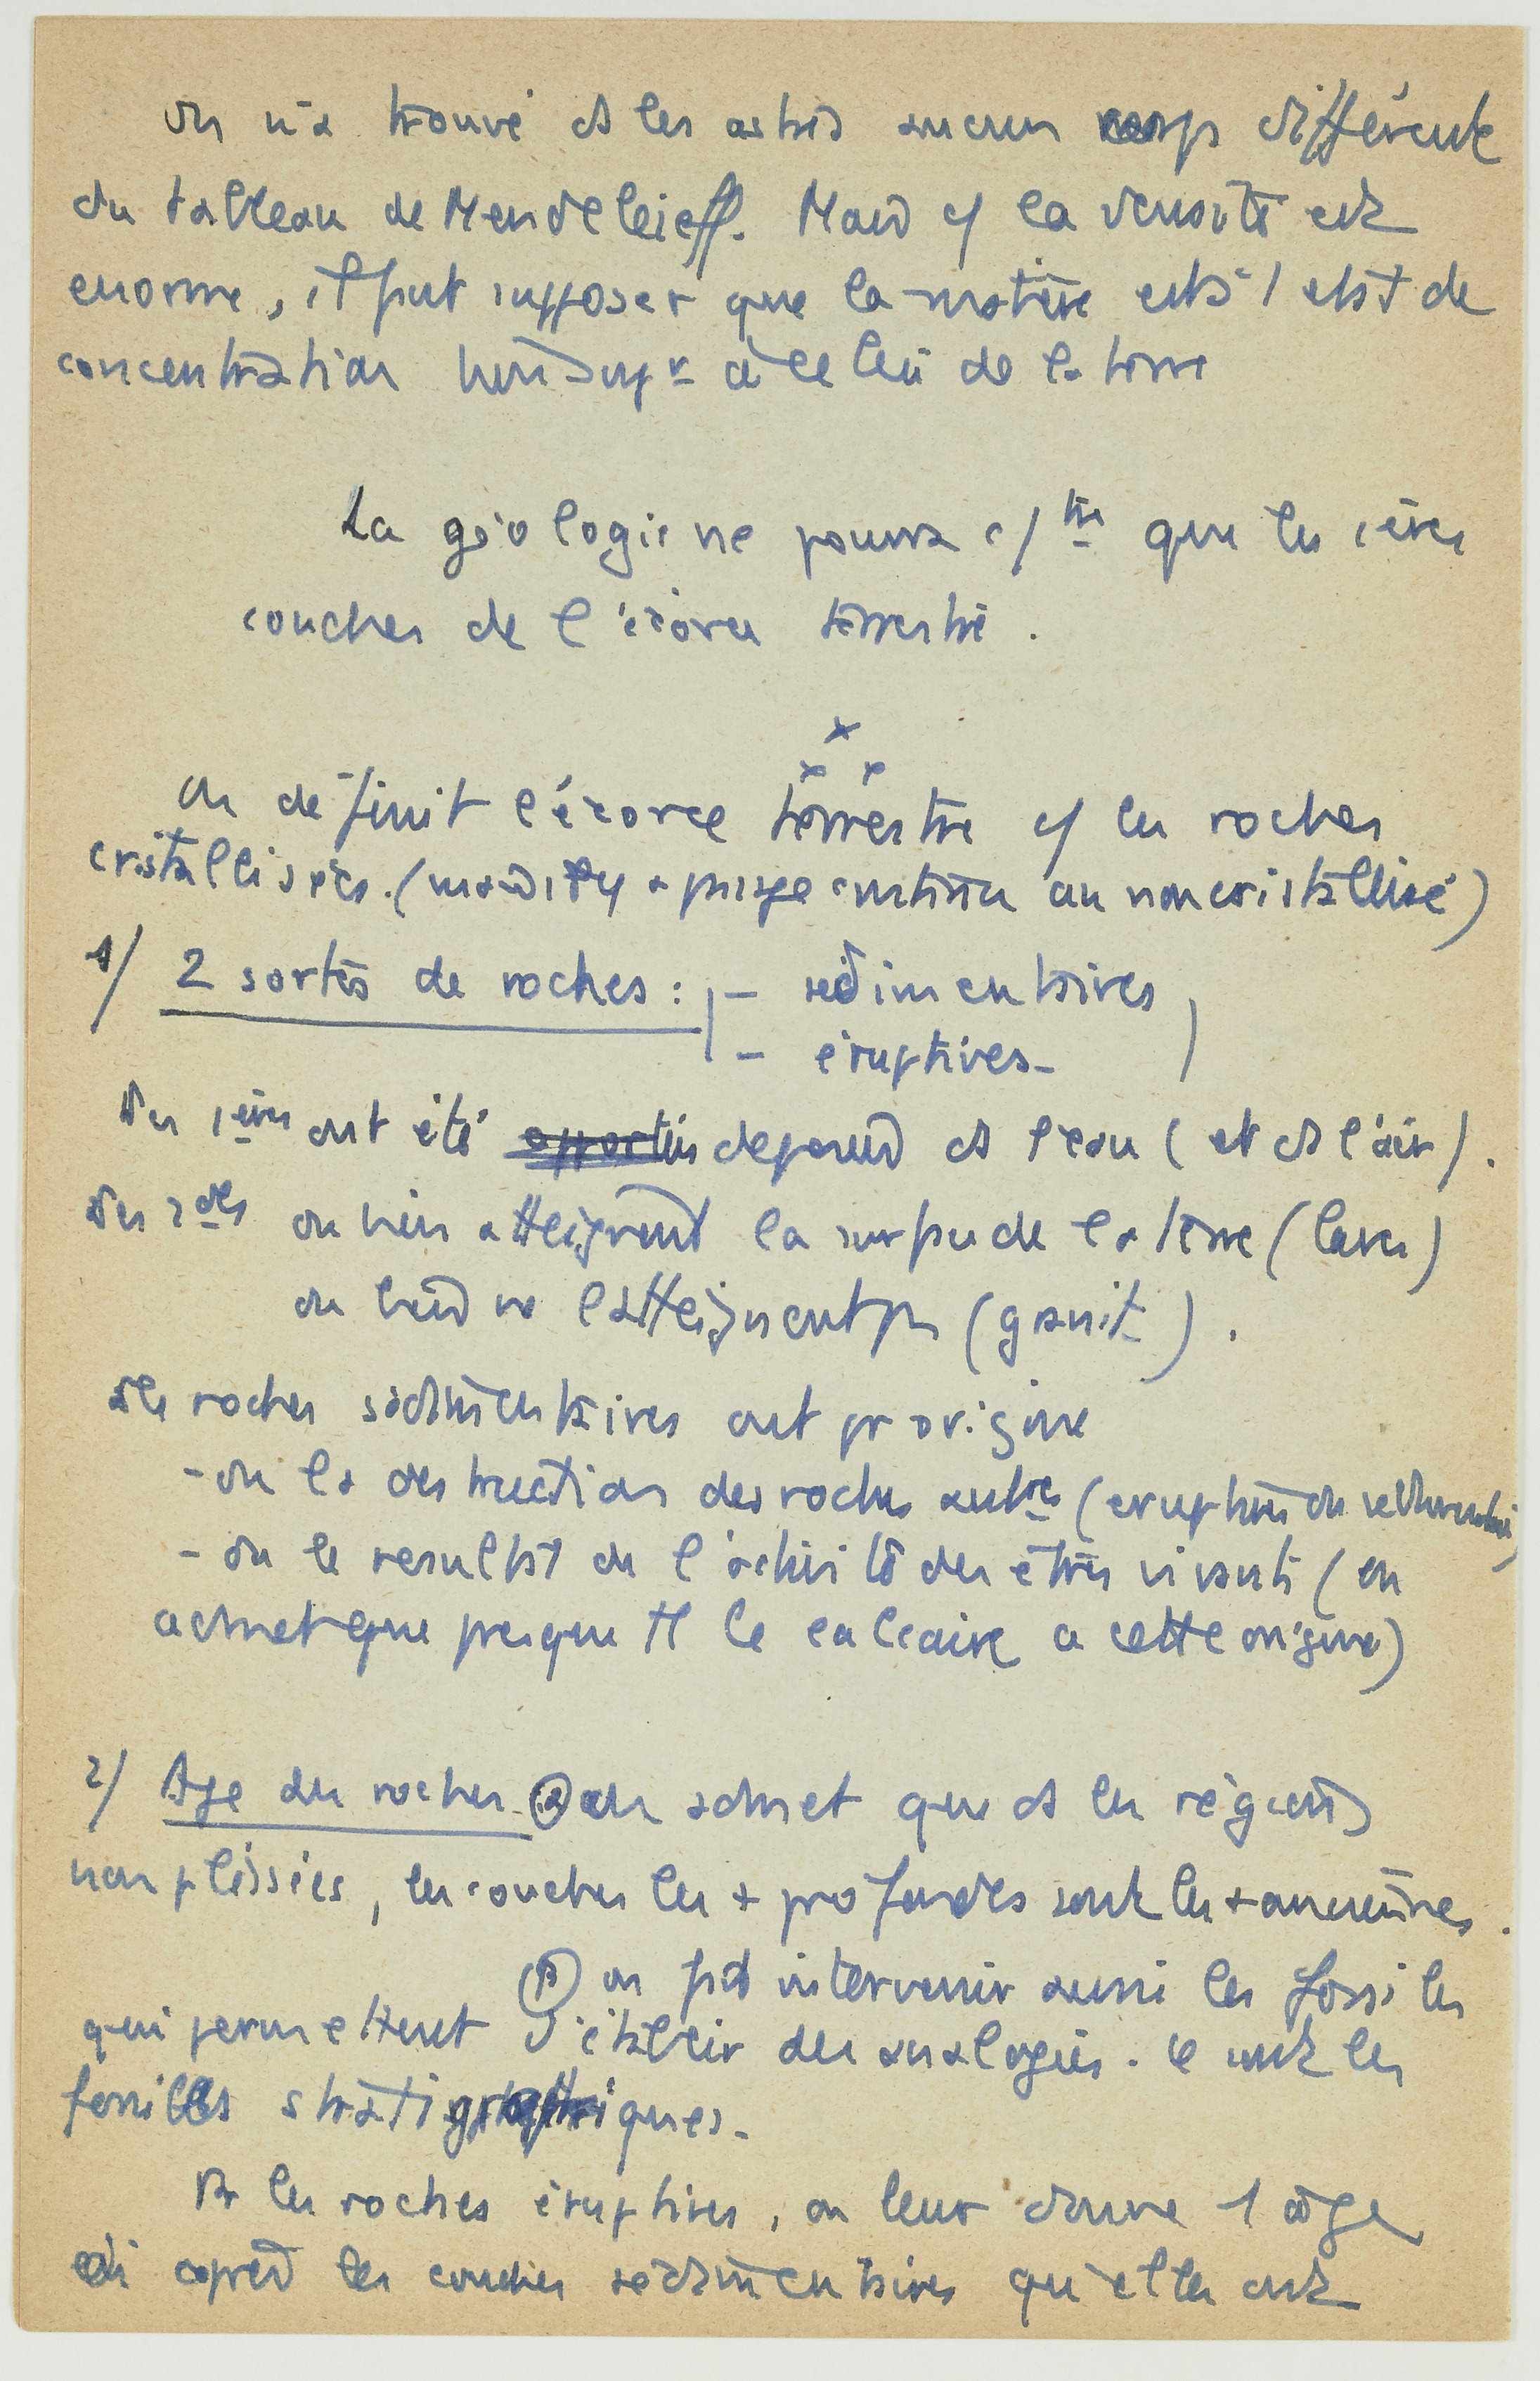 on n'a trouvé ds les astres aucun corps différent
du tableau de Mendeleieff. Mais c/ la densité est
enorme, il faut supposer que la matière est à 1 état de
concentration bien sup^r à celui de la terre
La géologie ne pourra c/^tre que les 1ères
couches de l'écorce terrestre.
x
x x
on définit l'écorce terrestre c/ les roches
cristallisées. (mais il y a presque matière au non cristallisé)
1/ 2 sortes de roches : - sédimentaires
- éruptives -
Les 1ères ont été deposées ds l'eau (et ds l'air).
Les 2des ou bien atteignent la surface de la terre (laves)
ou bien ne l'atteignent pas (granit).
Les roches sédimentaires ont pr origine
- ou la destruction des roches autres (eruptives ou sédimentaires)
- ou le resultat de l'activité des êtres vivants (on
admet que presque tt le calcaire a cette origine)
2/ Age des roches. (α) on admet que ds les régions
non plissées, les couches les + profondes sont les + anciennes.
(β) on fait intervenir aussi les fossiles
qui permettent d'établir des analogies. ce sont les
fossiles stratigraphiques -
Pr les roches éruptives, on leur donne 1 âge
d'après les couches sédimentaires qu'elles ont